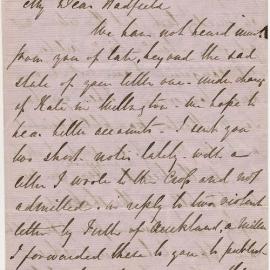 My Dear Hadfield
We have not heard much
from you of late, beyond the sad
state of your letter one - under charge
of Kate in Wellington - we hope to
hear better accounts - I sent you
two short notes lately - with a
letter I wrote to the and not
admitted - in reply to two violent
letters by Firth of Auckland, a Miller
I forwarded these to you to publish